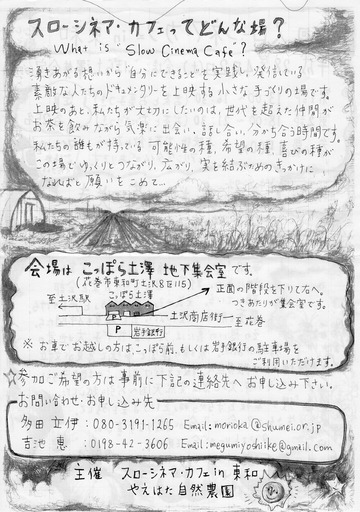 スローシネマ・カフェってどんな場？
What is "Slow Cinema Cafe"?
湧きあがる想いから"自分にできること"を実践し、発信している
素敵な人たちのドキュメンタリーを上映する小さな手づくりの場です。
上映のあと、私たちが大切にしたいのは、世代を超えた仲間が
お茶を飲みながら気楽に出会い、話し合い、分かち合う時間です。
私たちの誰もが持っている 可能性の種、希望の種、喜びの種が
この場でゆっくりとつながり、広がり、実を結ぶためのきっかけに
なればと願いをこめて…
会場は こっぽら土澤 地下集会室です。
(花巻市東和町土沢8区115)
こっぽら土澤
正面の階段を下りて右へ。
つきあたりが集会室です。
至土沢駅
土沢商店街
至花巻
P
P
岩手銀行
※ お車でお越しの方は、こっぽら前、もしくは岩手銀行の駐車場を
ご利用いただけます。
☆参加ご希望の方は事前に下記の連絡先へお申し込み下さい。
お問い合わせ・お申し込み先
多田 立伊：080-3191-1265 Email：morioka@shumei.or.jp
吉池 恵：0198-42-3606 Email：megumiyoshiike@gmail.com
主催 スローシネマ・カフェ in 東和
やえはた自然農園